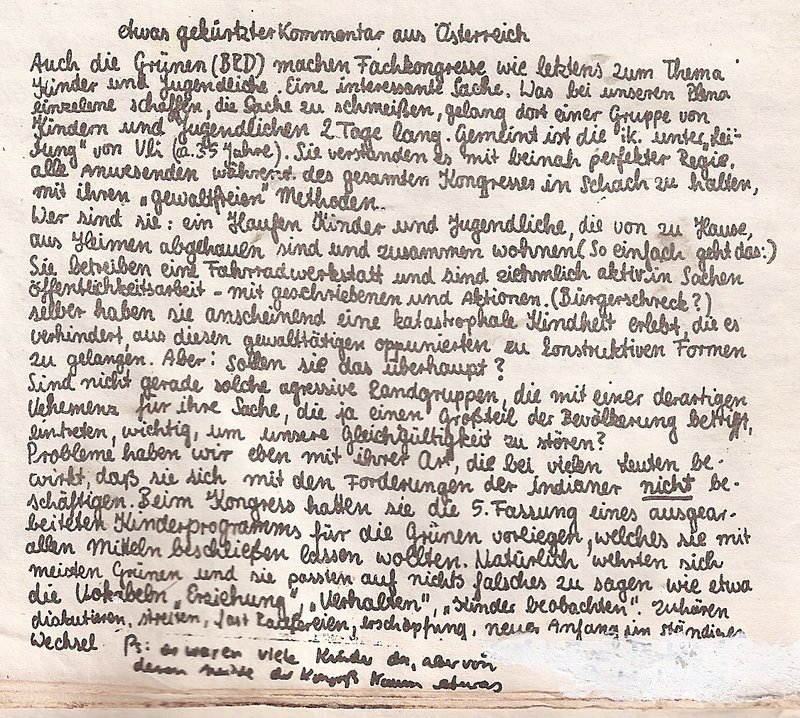 etwas gekürtzter Kommentar aus Österreich
Auch die Grünen (BRD) machen Fachkongresse wie letztens zum Thema
Kinder und Jugendliche. Eine interessante Sache. Was bei unseren Plena
einzelene schaffen, die Sache zu schmeißen, gelang dort einer Gruppe von
Kindern und Jugendlichen 2 Tage lang. Gemeint ist die ik. unter „Lei-
tung" von Uli (a.35 Jahre). Sie verstanden es mit beinah perfekter Regie,
alle Anwesenden während des gesamten Kongresses in Schach zu halten,
mit ihren „gewaltfreien" Methoden.
Wer sind sie: ein Haufen Kinder und Jugendliche, die von zu Hause,
aus Heimen abgehauen sind und zusammen wohnen (So einfach geht das:)
Sie betreiben eine Fahrradwerkstatt und sind ziehmlich aktiv in Sachen
öffentlichkeitsarbeit - mit geschriebenen und Aktionen. (Bürgerschreck?)
selber haben sie anscheinend eine katastrophale Kindheit erlebt, die es
verhindert, aus diesen gewalttätigen oppunierten zu konstruktiven Formen
zu gelangen. Aber: sollen sie das überhaupt?
Sind nicht gerade solche agressive Randgruppen, die mit einer derartigen
Vehemenz für ihre Sache, die ja einen Großteil der Bevölkerung betrifft,
eintreten, wichtig, um unsere Gleichgültigkeit zu stören?
Probleme haben wir eben mit ihrer Art, die bei vielen Leuten be-
wirkt, daß sie sich mit den Forderungen der Indianer nicht be-
schäftigen. Beim Kongress hatten sie die 5. Fassung eines ausgear-
beiteten Kinderprogramms für die Grünen vorliegen, welches sie mit
allen Mitteln beschließen lassen wollten. Natürlich wehrten sich
meisten Grünen und sie passten auf nichts falsches zu sagen wie etwa
die Vokabeln „Erziehung", „Verhalten", „Kinder beobachten". Zuhören
diskutieren, streiten, fast Raufereien, erschöpfung, neuer Anfang im ständigen
Wechsel Ps: es waren viele Kinder da, aber von
denen der Kongreß kaum etwas